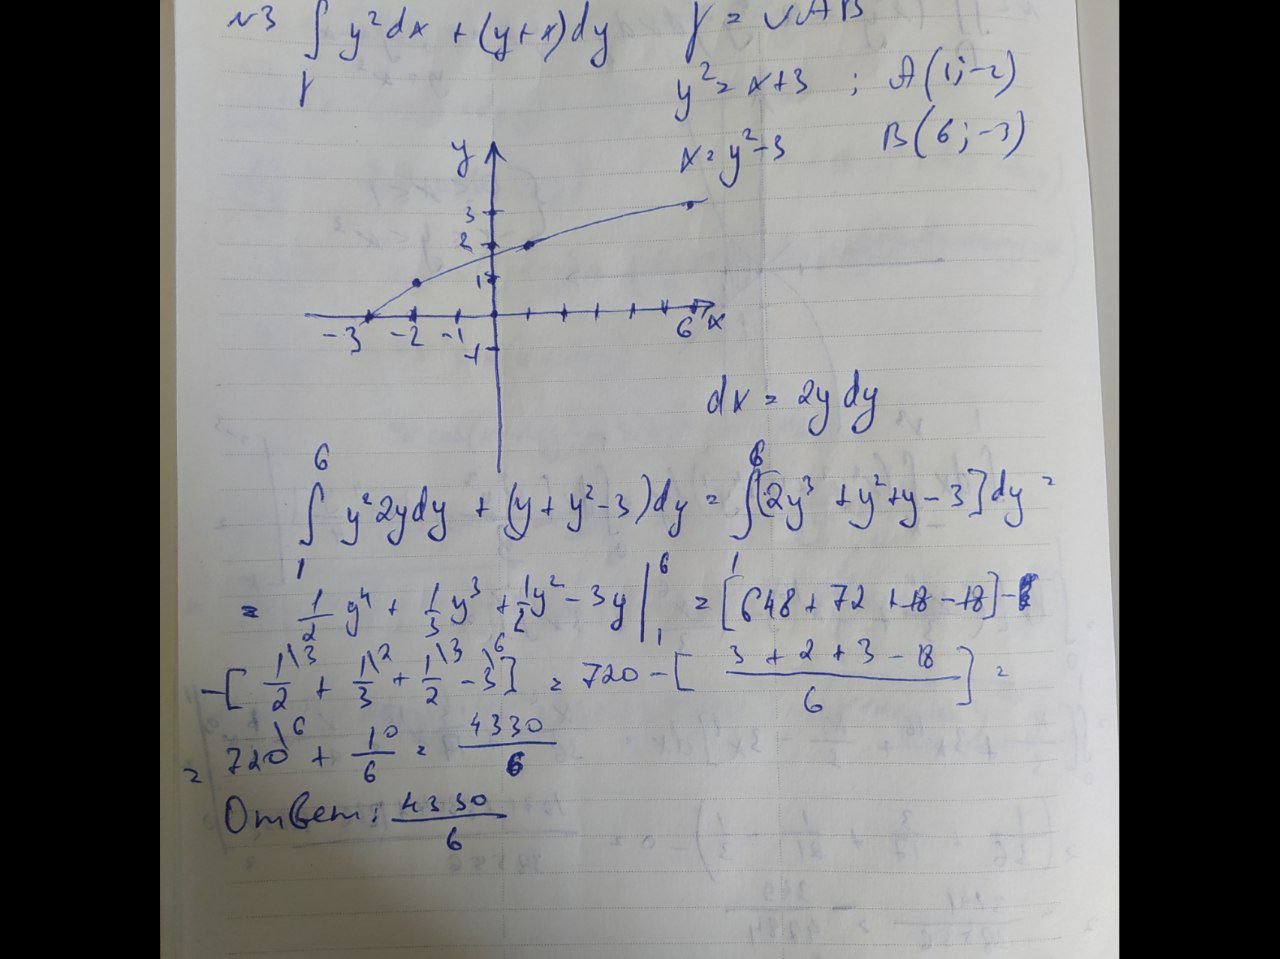 №3 ∫γ y²dx + (y+x)dy γ = ∪AB
y² = x+3 ; A(1;-2)
x = y²-3 B(6;-3)
y
3
2
1
-3 -2 -1 6 x
-1
dx = 2y dy
∫₁⁶ y²2ydy + (y+y²-3)dy = ∫₁⁶ [2y³ + y²+y-3]dy =
= 1/2 y⁴ + 1/3 y³ + 1/2 y² - 3y |₁⁶ = [648 + 72 + 18 - 18] -
- [1/2\3 + 1/3\2 + 1/2\3 - 3\6] = 720 - [(3 + 2 + 3 - 18)/6] =
= 720\6 + 10/6 = 4330/6
Ответ: 4330/6